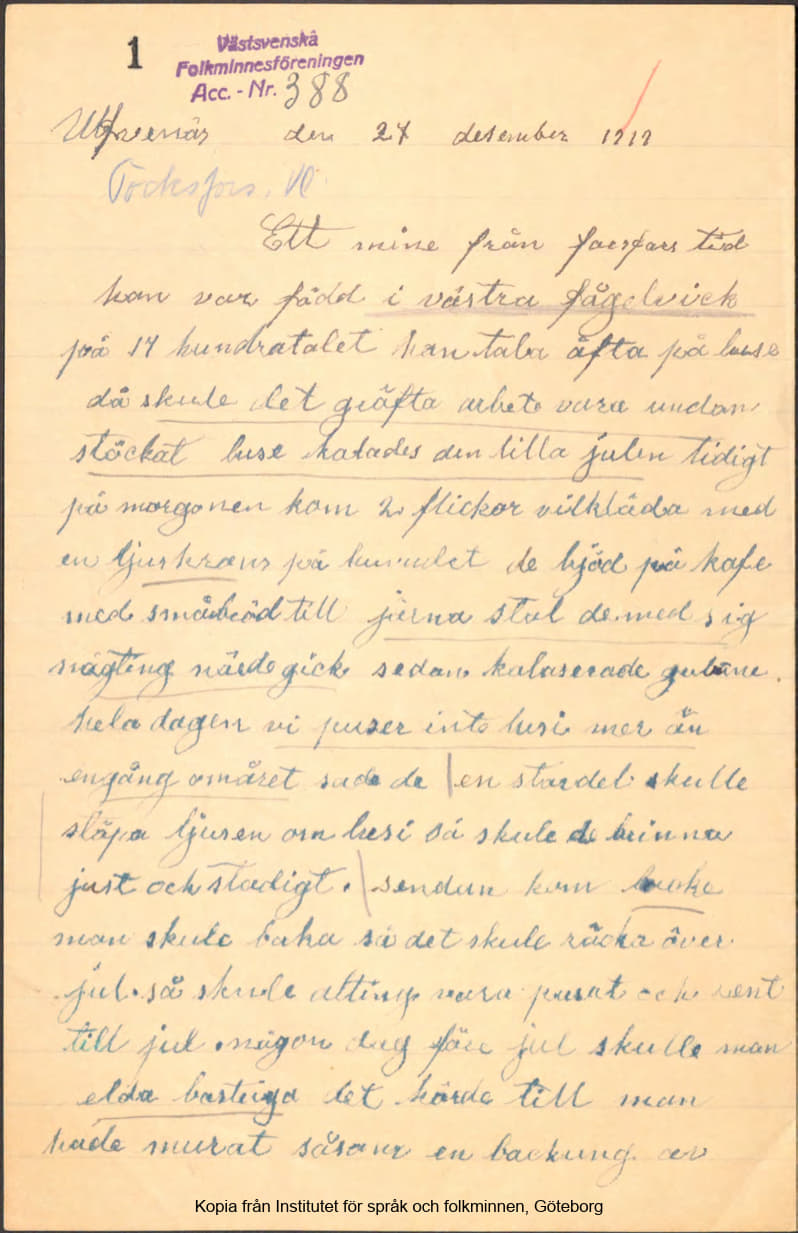 1
Västsvenska
Folkminnesföreningen
Acc. - Nr. 388
den 24 desember 1919
Töcksfors. Vl
Ett mine från farfars tid
han var född i västra fågelvick
på 17 hundratalet han tala äfta på luse
då skule det gräfta arbete vara undan
stöckat luse kalades den lilla julen tidigt
på morgonen kom 2 flickor vitkläda med
en ljuskrans på huvudet de bjöd på kafe
med småbröd till järna stal de med sig
någting närde gick sedan kalaserade gubane
hela dagen vi puser inte lusi mer än
engång omåret sade de en stordel skulle
stöpa ljusen om lusi så skule de brinna
just och stadigt. sendan kom
man skule baka så det skule räcka över
jul. så skule alting vara pusat och rent
till jul. någon dag före jul skulle man
elda bastuga det hörde till man
hade murat såsom en backung av
Kopia från Institutet för språk och folkminnen, Göteborg